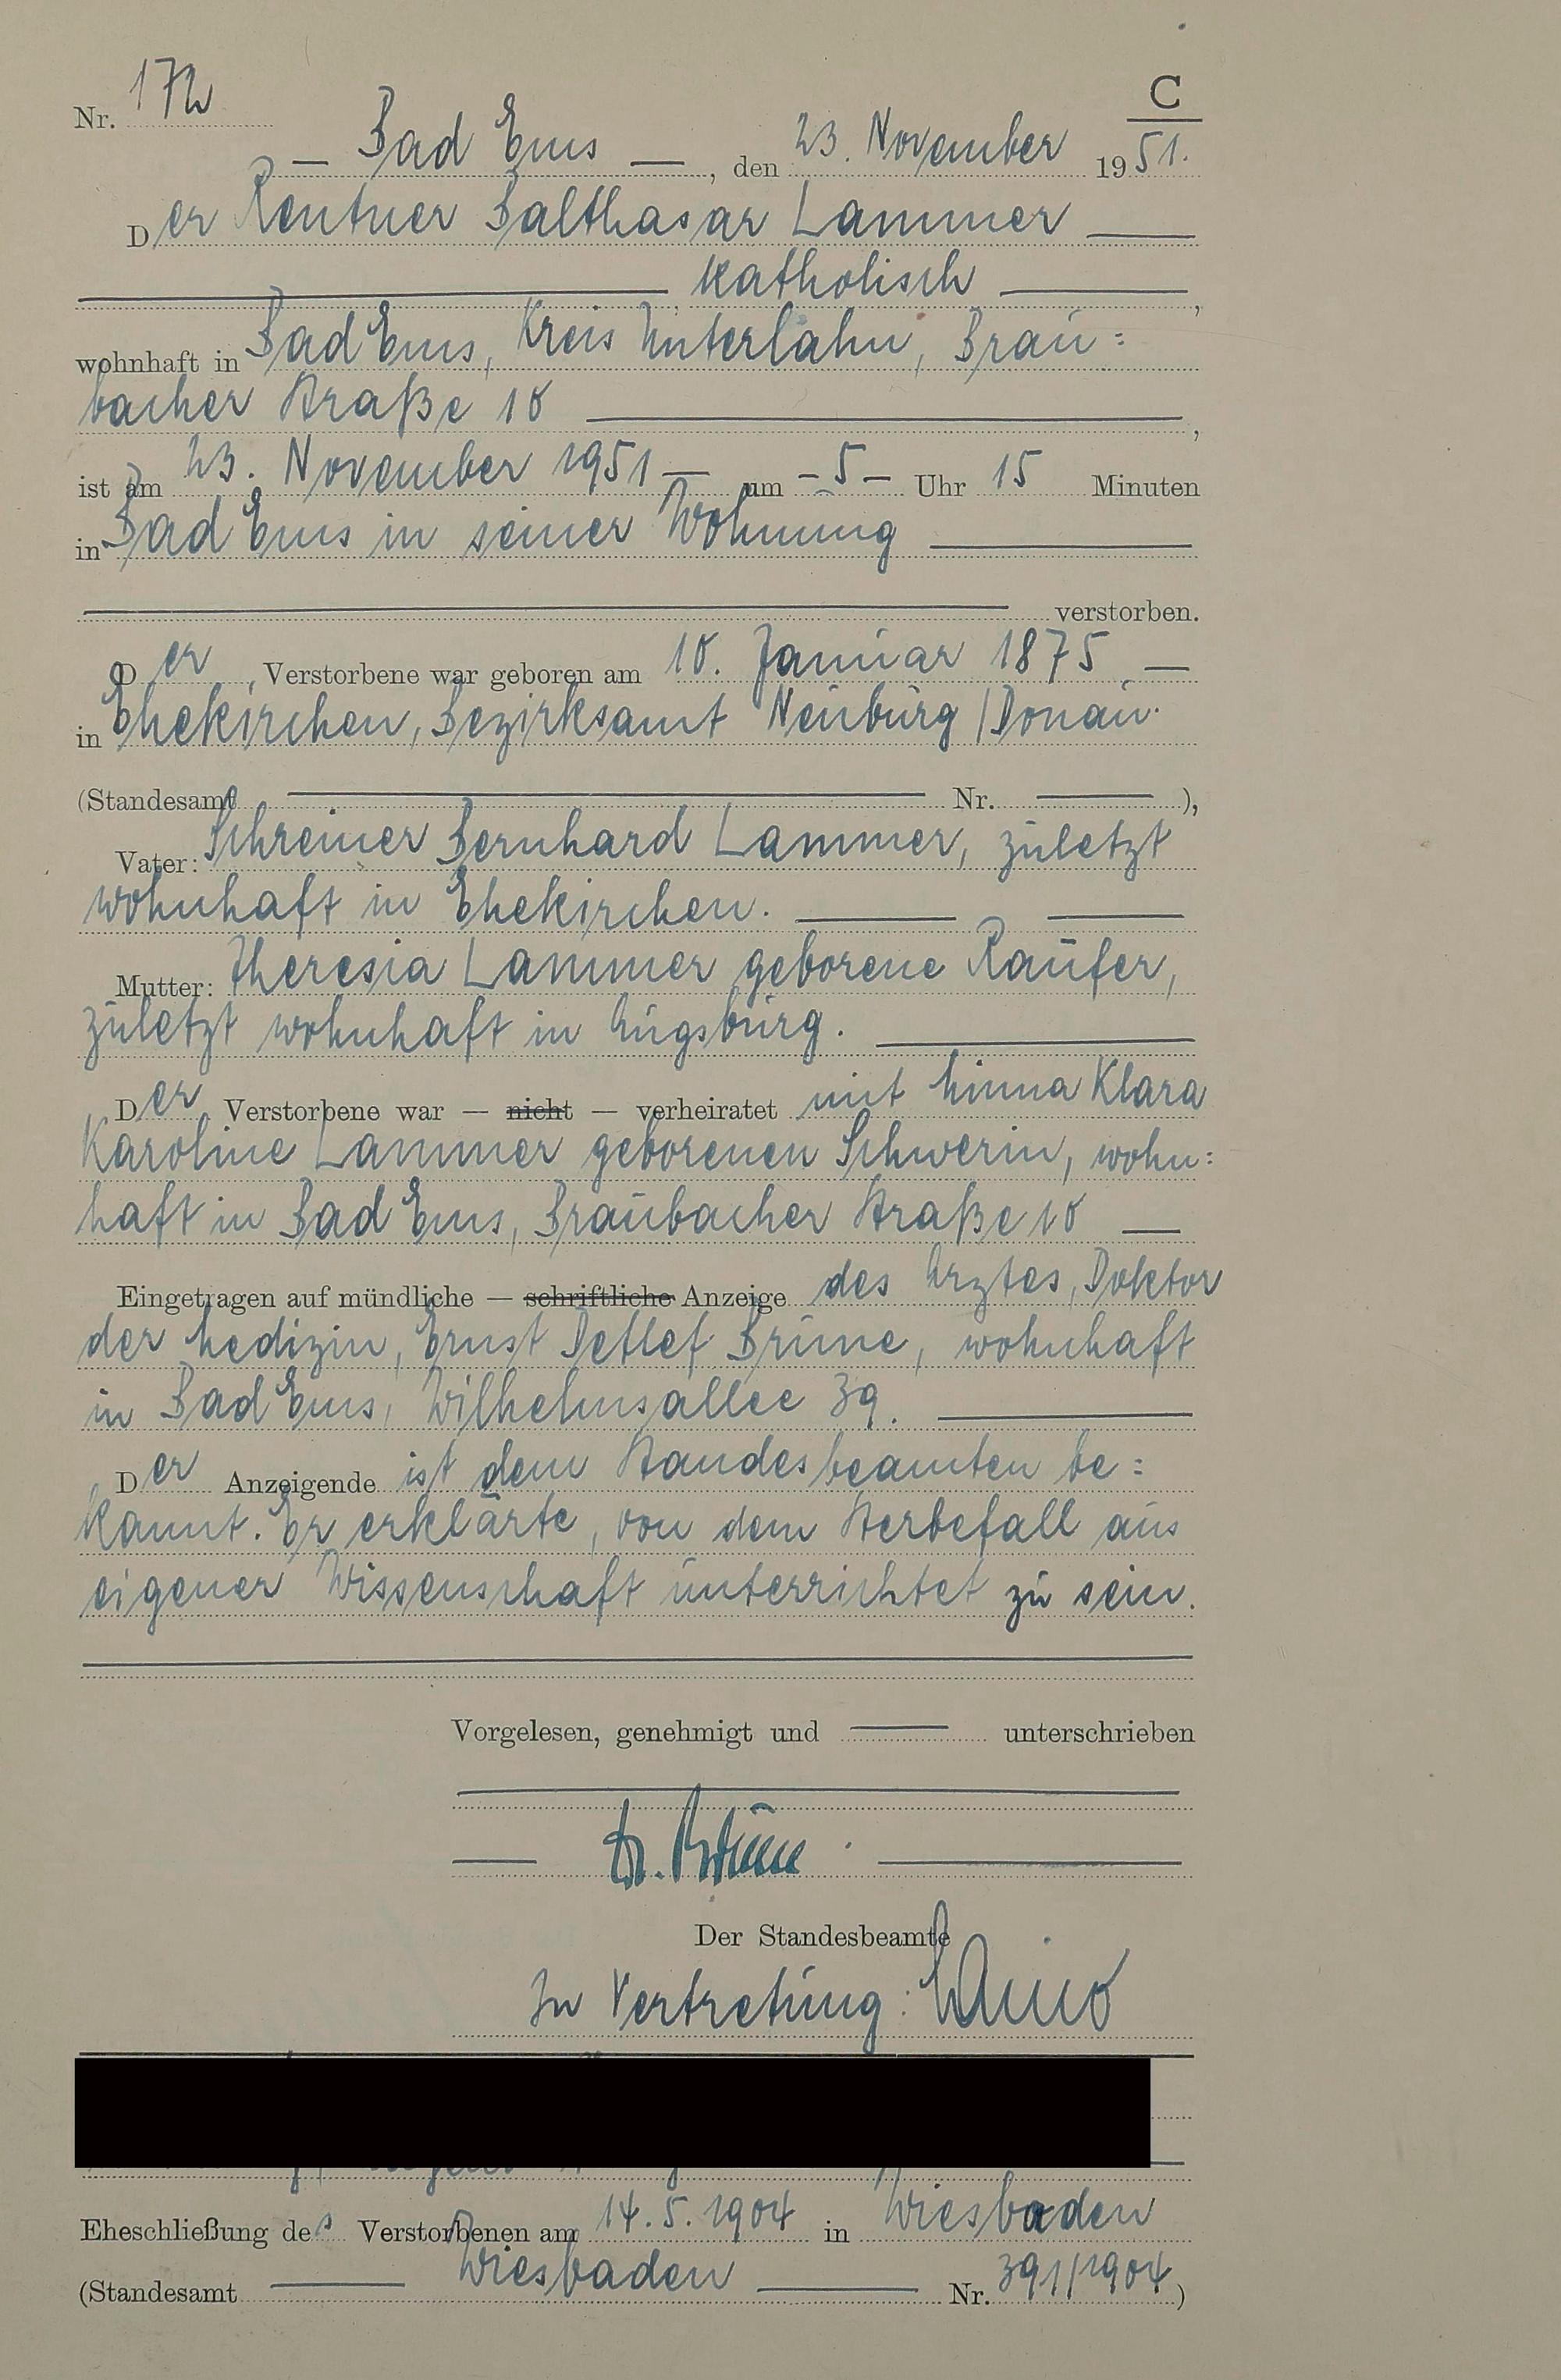 Nr. 172
C
— Bad Ems —, den 23. November 1951.
Der Rentner Balthasar Lammer
katholisch,
wohnhaft in Bad Ems, Kreis Unterlahn, Brau=
bacher Straße 18,
ist am 23. November 1951 — um - 5 - Uhr 15 Minuten
in Bad Ems in seiner Wohnung
verstorben.
Der Verstorbene war geboren am 18. Januar 1875 —
in Ehekirchen, Bezirksamt Neuburg/Donau.
(Standesamt — Nr. — ),
Vater: Schreiner Bernhard Lammer, zuletzt
wohnhaft in Ehekirchen.
Mutter: Theresia Lammer geborene Raufer,
zuletzt wohnhaft in Augsburg.
Der Verstorbene war — nicht — verheiratet mit Minna Klara
Karoline Lammer geborenen Schwerin, wohn=
haft in Bad Ems, Braubacher Straße 18 —
Eingetragen auf mündliche — schriftliche Anzeige des Arztes, Doktor
der Medizin, Ernst Detlef Brüne, wohnhaft
in Bad Ems, Wilhelmsallee 39.
Der Anzeigende ist dem Standesbeamten be=
kannt. Er erklärte, von dem Sterbefall aus
eigener Wissenschaft unterrichtet zu sein.
Vorgelesen, genehmigt und — unterschrieben
Dr. Brüne
Der Standesbeamte
In Vertretung:
Eheschließung des Verstorbenen am 14.5.1904 in Wiesbaden
(Standesamt — Wiesbaden — Nr. 391/1904)